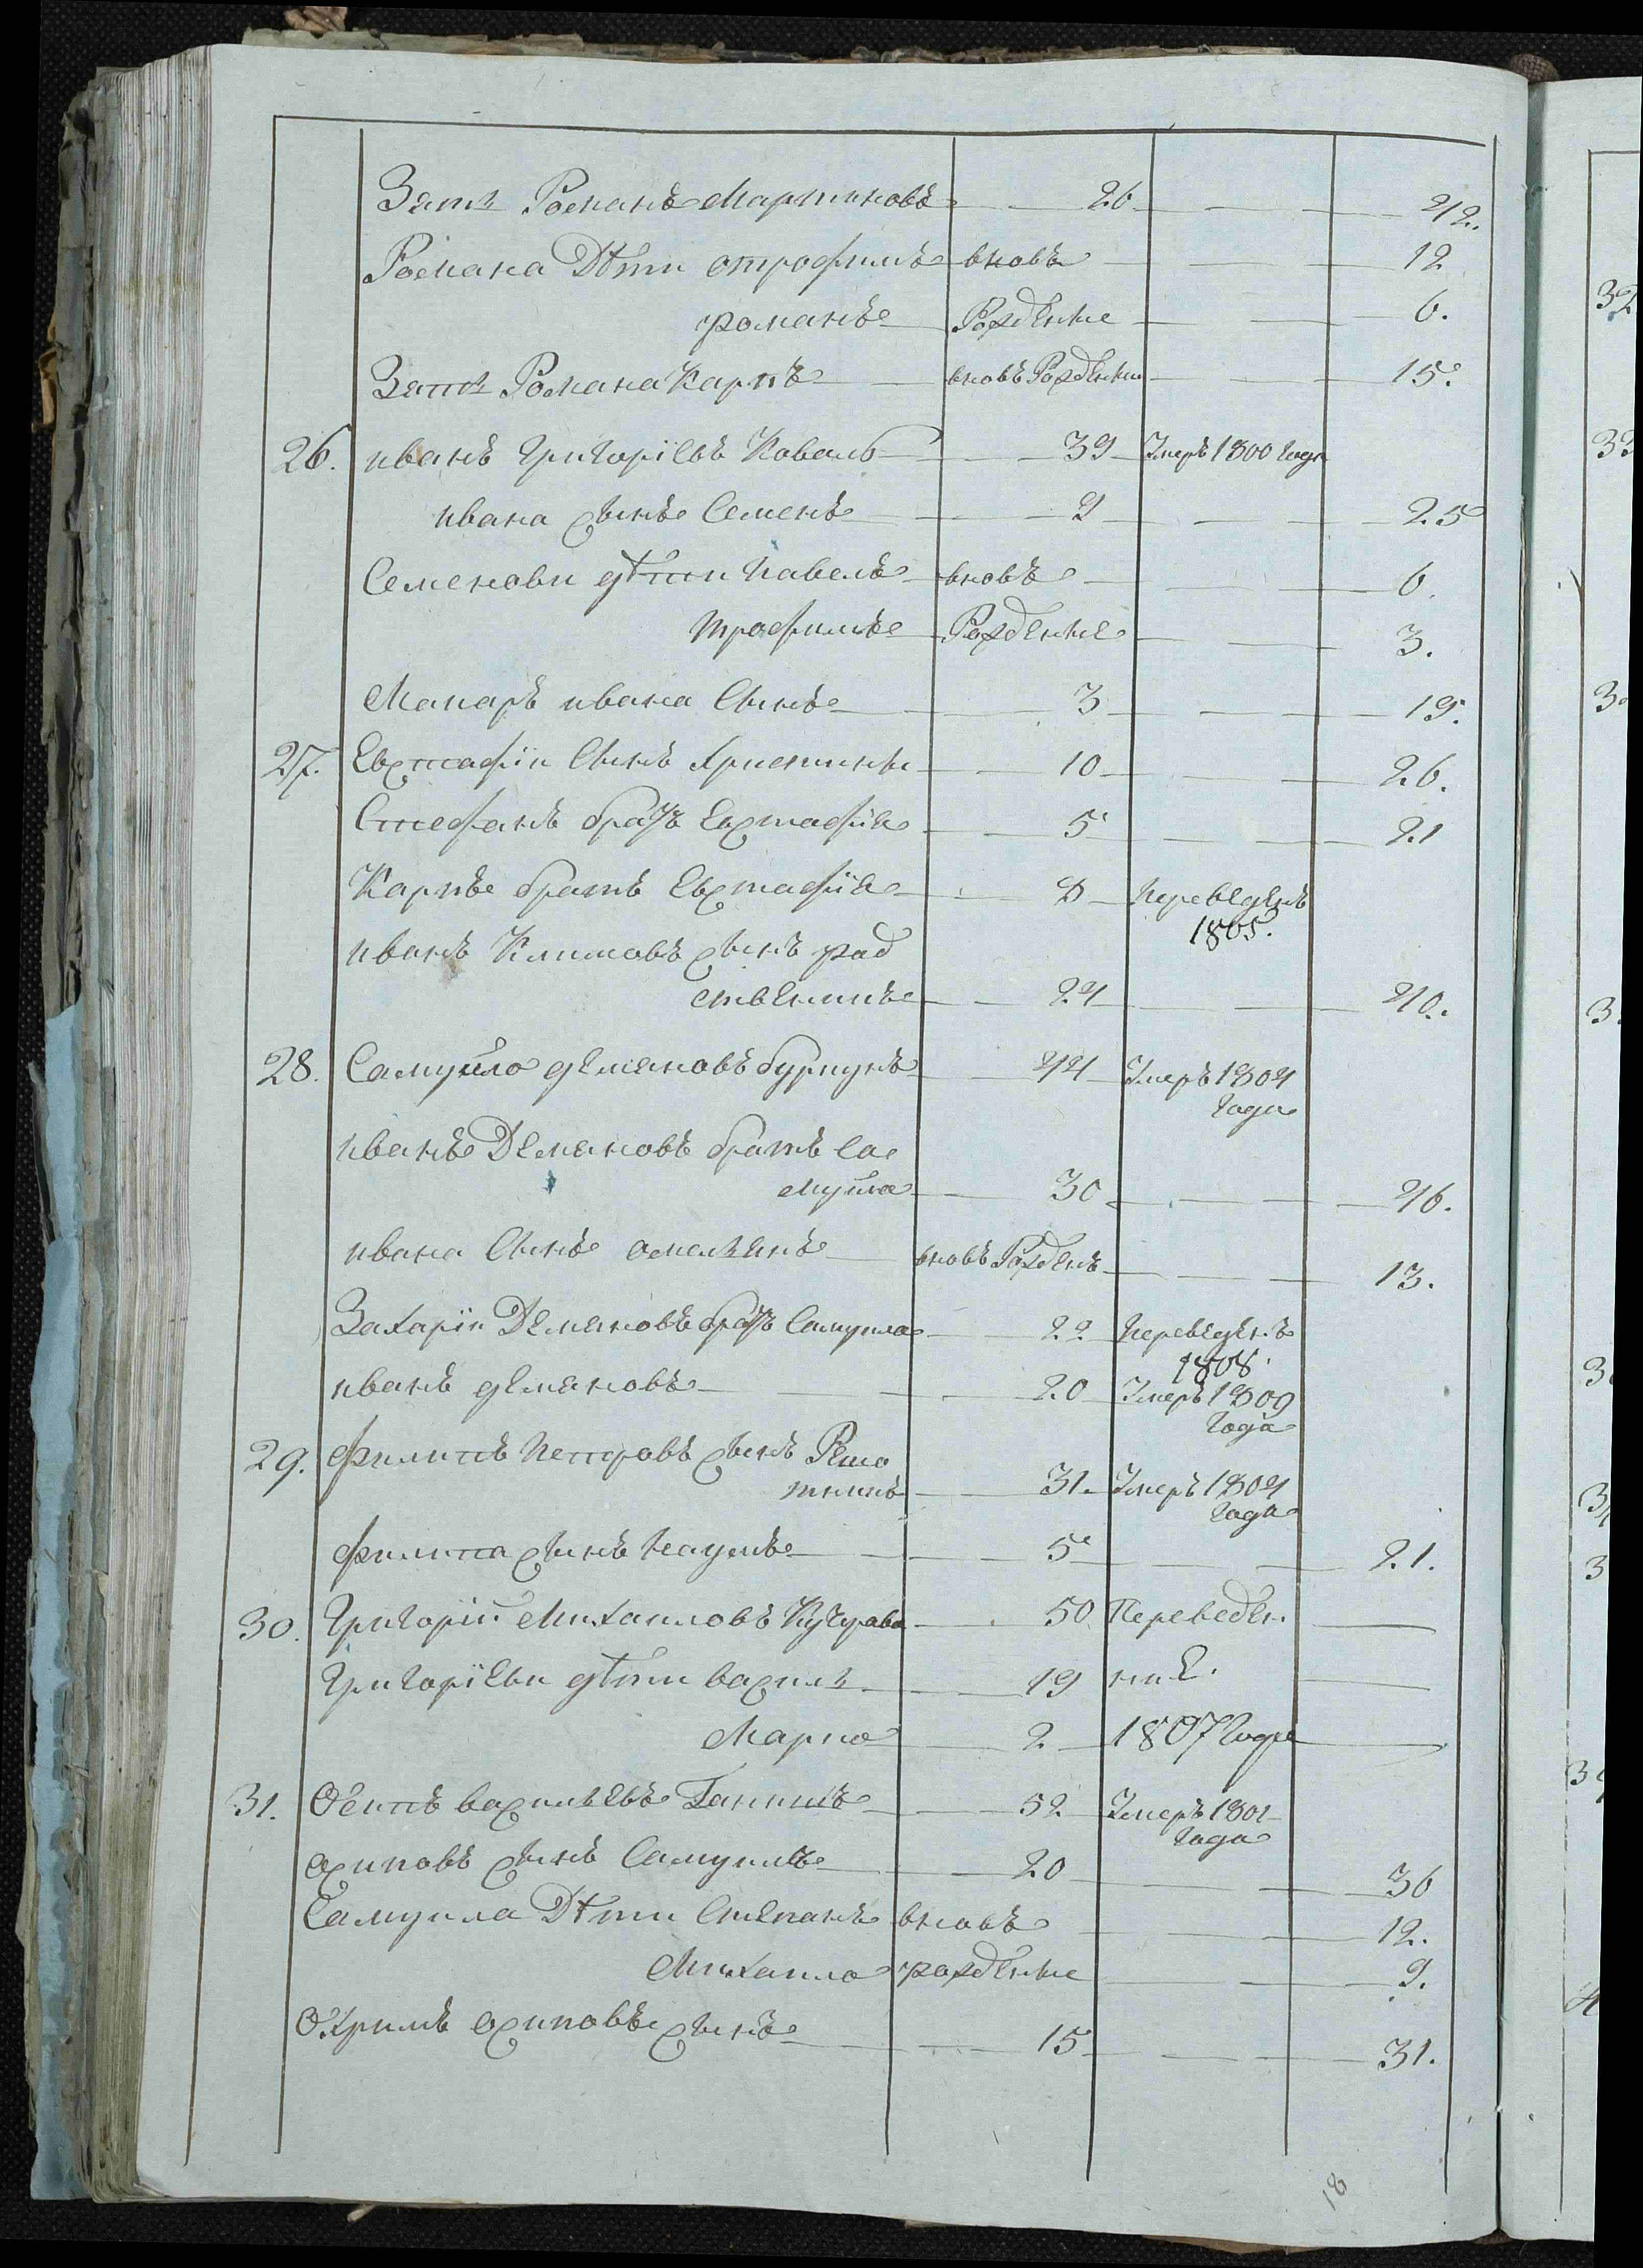 Зять Романъ Мартиновъ 26 42.
Романа Дѣти отрофимъ вновь 12
романъ Рожденые 6.
Зять Романа Карпъ вновь Рожденны 15.
26. иванъ Григоріевъ Коваль 39 Умеръ 1800 года
ивана сынъ Семенъ 9 25
Семенови дѣти павелъ вновь 6.
трофимъ Рожденые 3.
Макаръ ивана Сынъ 3 19.
27. Евстафіи Сынъ Христины 10 26.
Стефанъ братъ Евстафія 5 21
Карпъ братъ Евстафія 8 переведенъ
1805.
иванъ Климовъ сынъ род
ственикъ 24 40.
28. Самуйло демяновъ буркунъ 44 Умеръ 1804
года
иванъ Демяновъ братъ са
муйла 30 46.
ивана Сынъ омельянъ вновь Рожденъ 13.
Захаріи Демяновъ братъ Самуила 22 переведенъ
1808.
иванъ демяновъ 20 Умеръ 1809
года
29. филипъ петровъ сынъ Решо
тникъ 31. Умеръ 1804
года
филипа сынъ наумъ 5 21.
30. Григорій Михаиловъ Кучерова 50 Переведен.
Григоріеви дѣти василь 19 ние.
Марко 2 1807 года
31. Осипъ васильевъ Ганжинъ 52 Умеръ 1801
года
осиповъ сынъ Самуилъ 20 36
Самуила Дѣти Степанъ вновь 12.
Михаило рожденые 9.
Охримъ осиповъ сынъ 15 31.
18